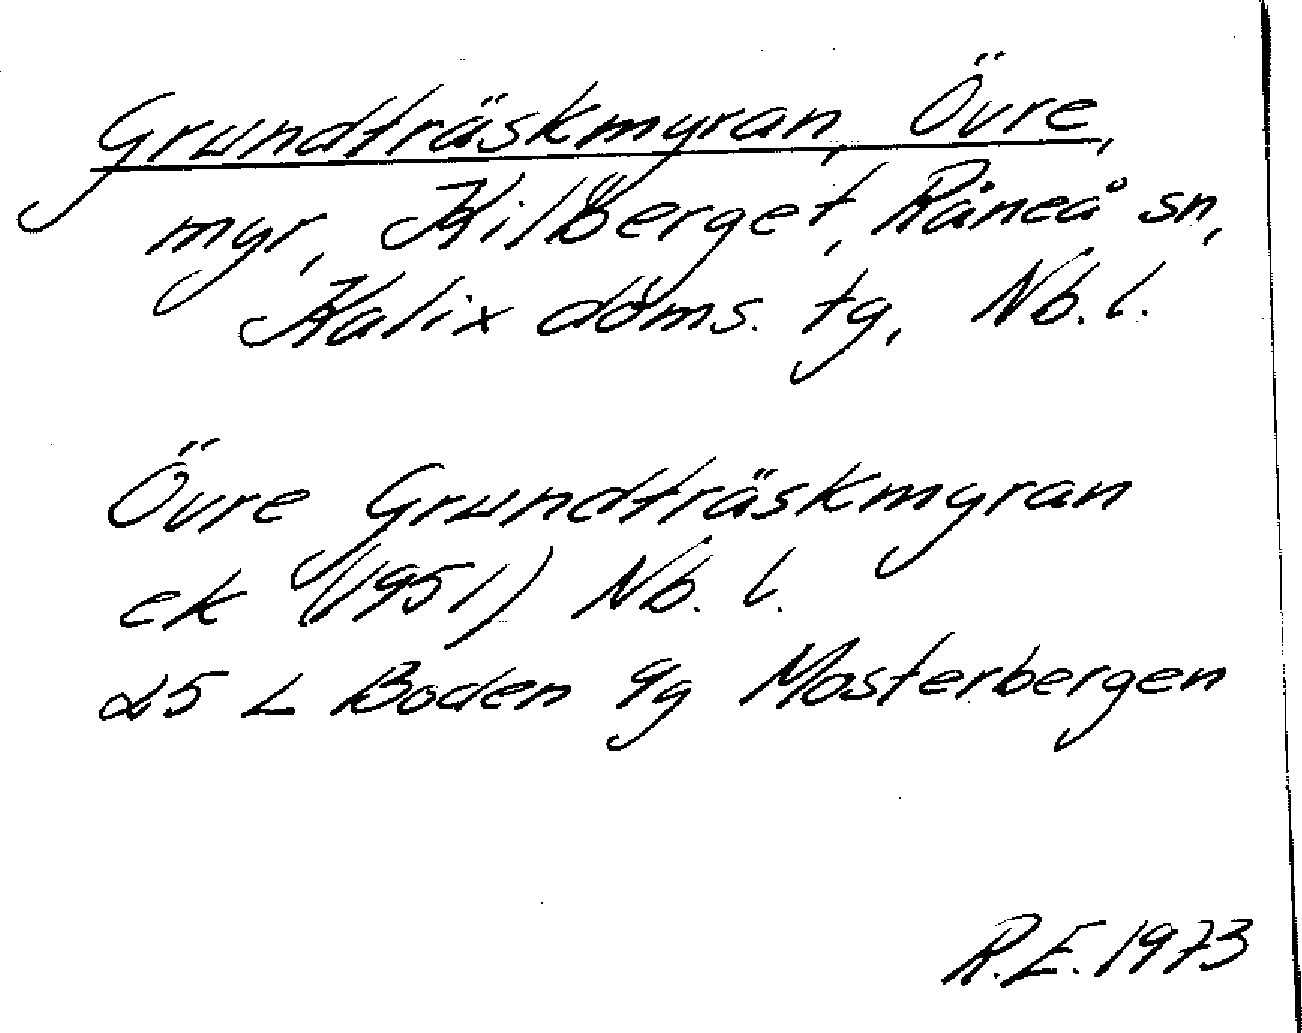 Grundträskmyran, Övre,
myr, Kilberget, Råneå sn,
Kalix doms. tg, Nb. l.
Övre Grundträskmyran
ek (1951) Nb. l.
25 L Boden 9g Mosterbergen
R.E. 1973